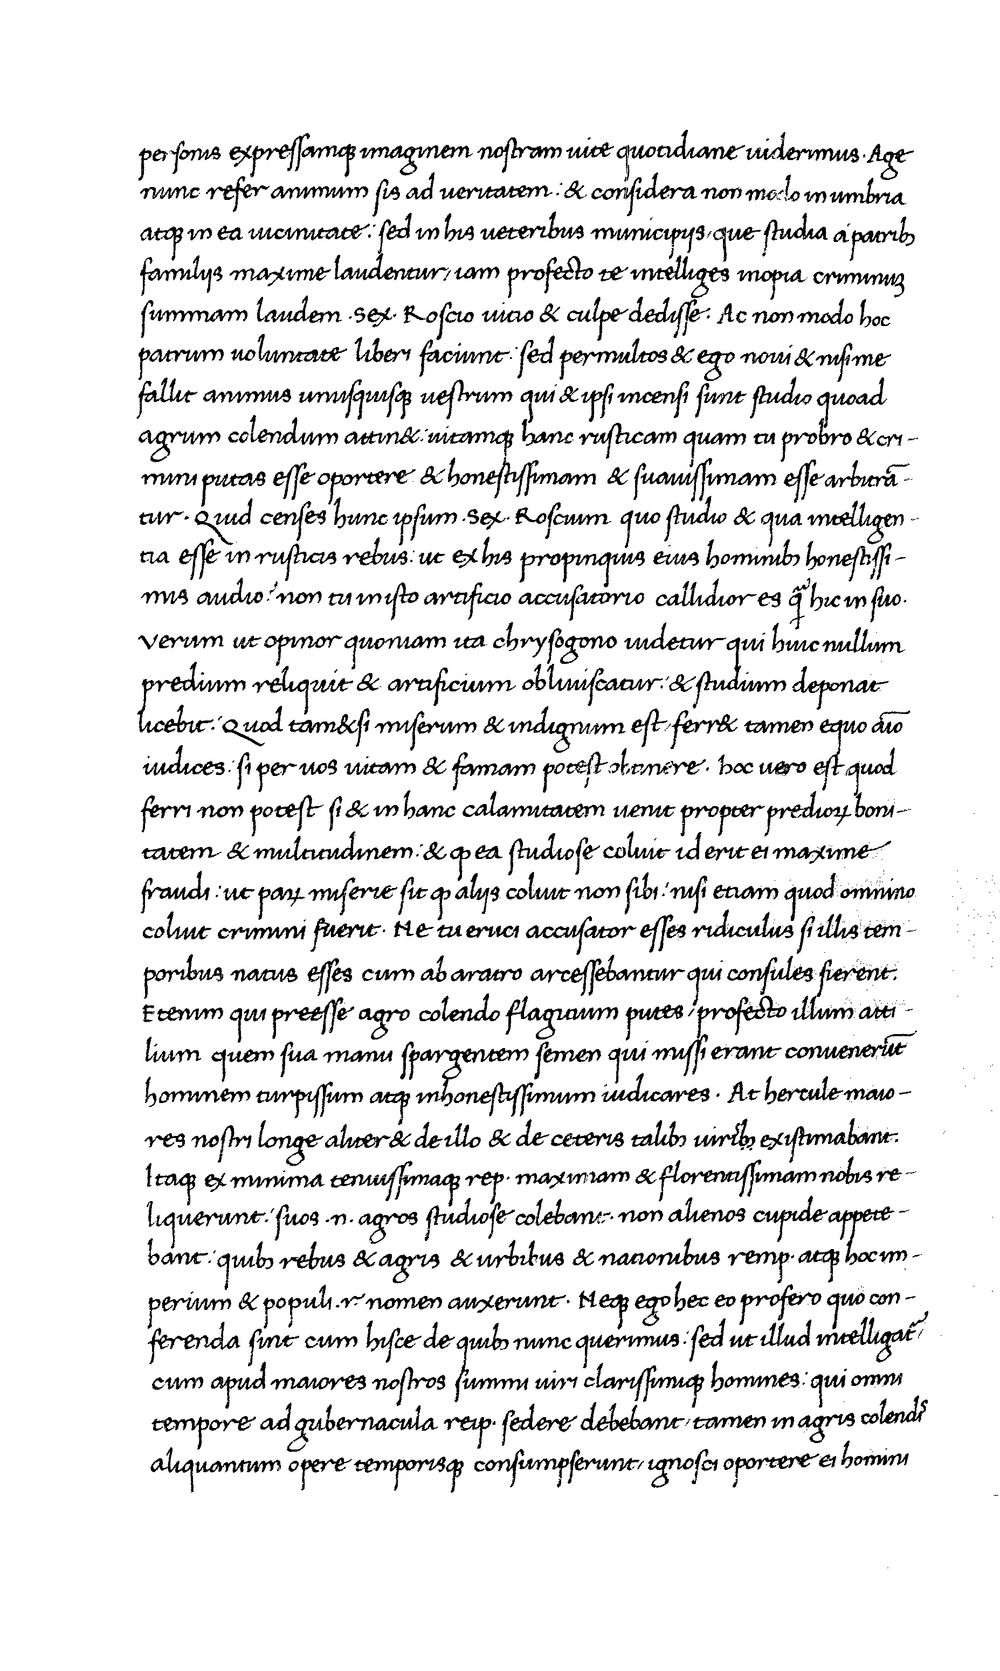 personis expressamq; imaginem nostram uite quotidiane uiderimus. Age
nunc refer animum sis ad ueritatem: & considera non modo in umbria
atq; in ea uicinitate: sed in his ueteribus municipijs, que studia a patrib;
familijs maxime laudentur, iam profecto te intelliges inopia criminum
summam laudem .Sex. Roscio uicio & culpe dedisse. Ac non modo hoc
patrum uoluntate liberi faciunt: sed permultos & ego noui & nisi me
fallit animus unusquisq; uestrum qui & ipsi incensi sunt studio quoad
agrum colendum attin&: uitamq; hanc rusticam quam tu probro & cri-
mini putas esse oportere & honestissimam & suauissimam esse arbitrā-
tur. Quid censes hunc ipsum .Sex. Roscium quo studio & qua intelligen-
tia esse in rusticis rebus: ut ex his propinquis eius hominib; honestissi-
mis audio: non tu in isto artificio accusatorio callidior es q̄ hic in suo.
Verum ut opinor quoniam ita chrysogono uidetur qui huic nullum
predium reliquit & artificium obliuiscatur: & studium deponat
licebit: Quod tam&si miserum & indignum est, ferr& tamen equo aīo
iudices: si per uos uitam & famam potest obtinere. hoc uero est quod
ferri non potest si & in hanc calamitatem uenit propter predioꝝ boni-
tatem & multitudinem: & ꝙ ea studiose coluit id erit ei maxime
fraudi: ut paꝝ miserie sit ꝙ alijs coluit non sibi: nisi etiam quod omnino
coluit crimini fuerit. Ne tu eruci accusator esses ridiculus si illis tem-
poribus natus esses cum ab aratro arcessebantur qui consules fierent.
Etenim qui preesse agro colendo flagitium putes, profecto illum atti-
lium quem sua manu spargentem semen qui missi erant conuenerūt
hominem turpissum atq; inhonestissimum iudicares. At hercule maio-
res nostri longe aliter & de illo & de ceteris talib; uirib; existimabant.
Itaq; ex minima tenuissimaq; rep. maximam & florentissimam nobis re-
liquerunt: suos .n. agros studiose colebant. non alienos cupide appete-
bant: quib; rebus & agris & urbibus & nationibus remp. atq; hoc im-
perium & populi .r. nomen auxerunt. Neq; ego hec eo profero quo con-
ferenda sint cum hisce de quib; nunc querimus: sed ut illud intelligat᷑,
cum apud maiores nostros summi uiri clarissimiq; homines: qui omni
tempore ad gubernacula reip. sedere debebant, tamen in agris colendis
aliquantum opere temporisq; consumpserunt, ignosci oportere ei homini